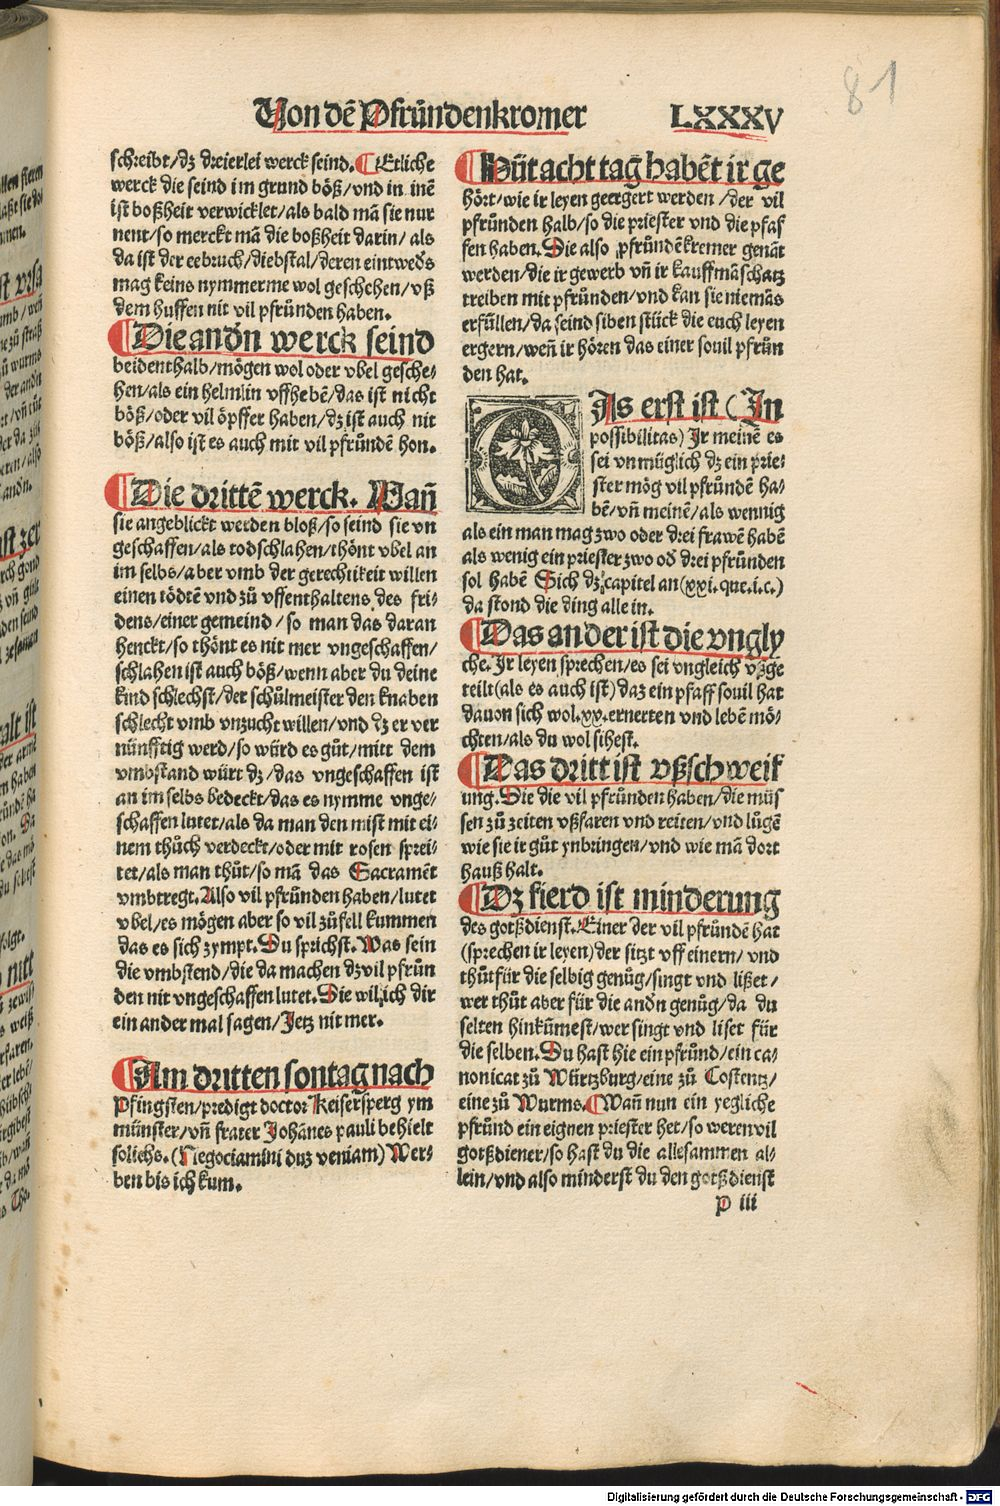 Von dē Pfründenkromer LXXXV
81
schreibt/dz dreierlei werck seind. ¶Etliche
werck die seind im grund böß/vnd in inē
ist boßheit verwicklet/als bald mā sie nur
nent/so merckt mā die boßheit darin/ als
da ist der eebruch/diebstal/deren eintweds
mag keins nymmerme wol geschehen/vß
dem huffen nit vil pfründen haben.
¶Die andn̄ werck seind
beidenthalb/mögen wol oder vbel gesche⸗
hen/als ein helmlin vffhebē/das ist nicht
böß/oder vil öpffer haben/dz ist auch nit
böß/also ist es auch mit vil pfründē hon.
¶Die drittē werck. Wañ
sie angeblickt werden bloß/so seind sie vn
geschaffen/als todschlahen/thönt vbel an
im selbs/aber vmb der gerechtikeit willen
einen tödtē vnd zů vffenthaltens des fri⸗
dens/einer gemeind/so man das daran
henckt/so thönt es nit mer vngeschaffen/
schlahen ist auch böß/wenn aber du deine
kind schlechst/der schůlmeister den knaben
schlecht vmb vnzucht willen/vnd dz er ver
nünfftig werd/so würd es gůt/mitt dem
vmbstand würt dz/das vngeschaffen ist
an im selbs bedeckt/das es nymme vnge⸗
schaffen lutet/als da man den mist mit ei⸗
nem thůch verdeckt/oder mit rosen sprei⸗
tet/als man thůt/so mā das Sacramēt
vmbtregt. Also vil pfründen haben/lutet
vbel/es mögen aber so vil zůfell kummen
das es sich zympt. Du sprichst. Was sein
die vmbstend/die da machen dz vil pfrün
den nit vngeschaffen lutet. Die wil ich dir
ein ander mal sagen/Jetz nit mer.
¶Am dritten sontag nach
Pfingsten/predigt doctor Keisersperg ym
münster/vñ frater Johānes pauli behielt
solichs. (Negociamini duz veniam) Wer⸗
ben bis ich kum.
¶Hüt acht tag habēt ir ge
hört/wie ir leyen geergert werden /der vil
pfründen halb/so die priester vnd die pfaf
fen haben. Die also pfründēkremer genāt
werden/die ir gewerb vñ ir kauffmāschatz
treiben mit pfründen/vnd kan sie niemās
erfüllen/da seind siben stück die euch leyen
ergern/weñ ir hören das einer souil pfrün
den hat.
DAs erst ist (In
possibilitas) Jr meinē es
sei vnmüglich dz ein prie⸗
ster mög vil pfründē ha⸗
bē/vñ meinē/als wennig
als ein man mag zwo oder drei frawē habē
als wenig ein priester zwo od drei pfründen
sol habē Sich dz capitel an(xxi.que.i.c.)
da stond die ding alle in.
¶Das ander ist die vngly
che. Jr leyen sprechen/es sei vngleich vßge
teilt(als es auch ist)daz ein pfaff souil hat
dauon sich wol.xx.ernerten vnd lebē mö⸗
chten/als du wol sihest.
¶Das dritt ist vßschweif
ung. Die die vil pfründen haben/die müs
sen zů zeiten vßfaren vnd reiten/vnd lůgē
wie sie ir gůt ynbringen/vnd wie mā dort
hauß halt.
¶Dz fierd ist minderung
des gotßdienst. Einer der vil pfründē hat
(sprechen ir leyen)der sitzt vff einern/ vnd
thůt für die selbig genůg/singt vnd lißet/
wer thůt aber für die andn̄ genůg/da du
selten hinkümest/wer singt vnd liset für
die selben. Du hast hie ein pfründ/ein ca⸗
nonicat zů Würtzburg/eine zů Costentz/
eine zů Wurms. ¶Wañ nun ein yegliche
pfründ ein eignen priester het/so weren vil
gotßdiener/so hast du die allesammen al⸗
lein/vnd also minderst du den gotßdienst
P iii
Digitalisierung gefördert durch die Deutsche Forschungsgemeinschaft - DFG